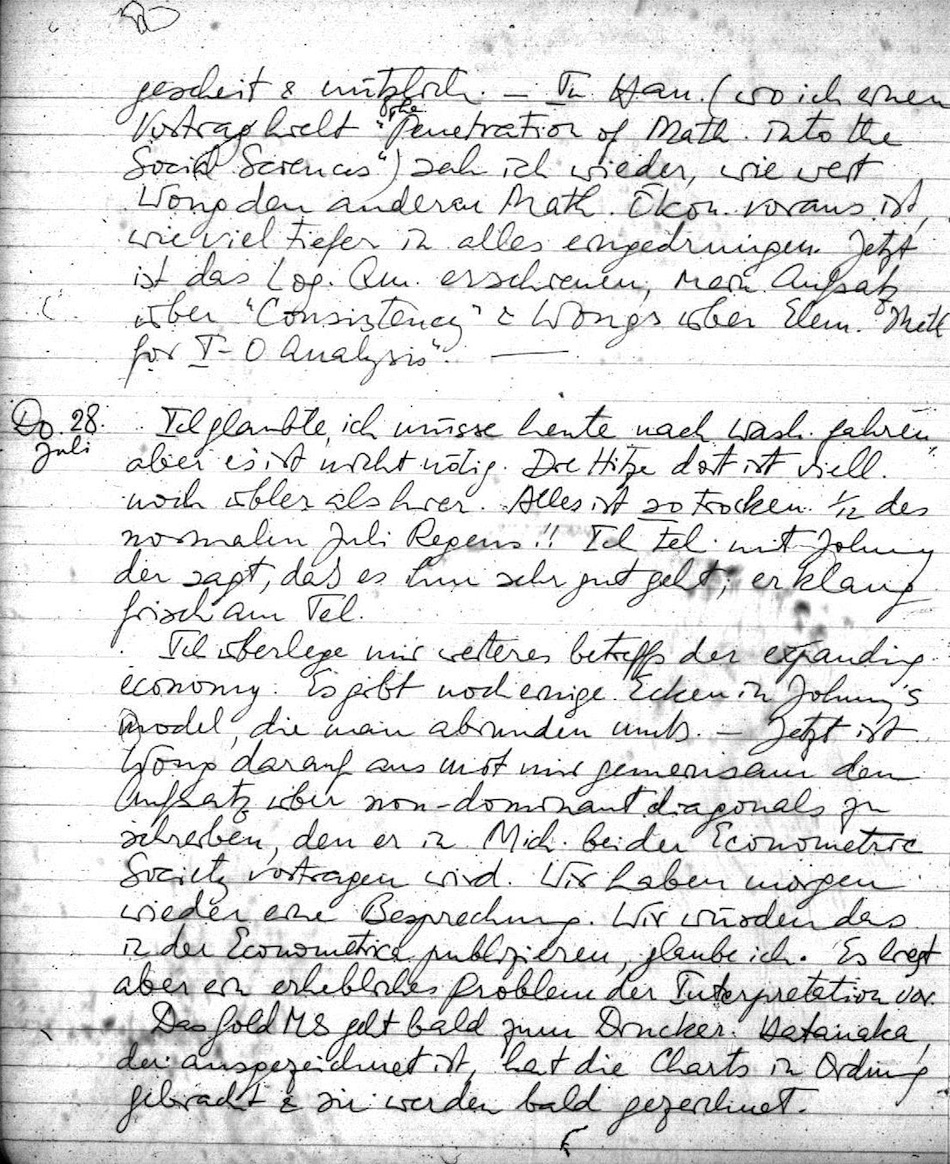 gescheit & nützlich. — In Han. (wo ich einen
Vortrag hielt "The Penetration of Math. into the
Social Sciences") sah ich wieder, wie weit
Wong den anderen Math. Ökon. voraus ist,
wie viel tiefer in alles eingedrungen. Jetzt
ist das Log. Qu. erschienen, mein Aufsatz
über "Consistency" & Wongs über Elem. "Math
for I-O Analysis". —
Do. 28. Juli Ich glaubte, ich müsse heute nach Wash. fahren
aber es ist nicht nötig. Die Hitze dort ist viell.
noch übler als hier. Alles ist so trocken. 1/12 des
normalen Juli Regens!! Ich tel. mit Johnny
der sagt, daß es ihm sehr gut geht; er klang
frisch am Tel.
Ich überlege mir weiteres betreffs der expanding
economy. Es gibt noch einige Ecken in Johnny's
Model, die man abrunden muß. — Jetzt ist
Wong darauf aus mit mir gemeinsam den
Aufsatz über non-dominant diagonals zu
schreiben, den er in Mich. bei der Econometric
Society vortragen wird. Wir haben morgen
wieder eine Besprechung. Wir würden das
in der Econometrica publizieren, glaube ich. Es liegt
aber ein erhebliches Problem der Interpretation vor.
Das Gold MS geht bald zum Drucker. Hatanaka,
der ausgezeichnet ist, hat die Charts in Ordnung
gebracht & sie werden bald gezeichnet.